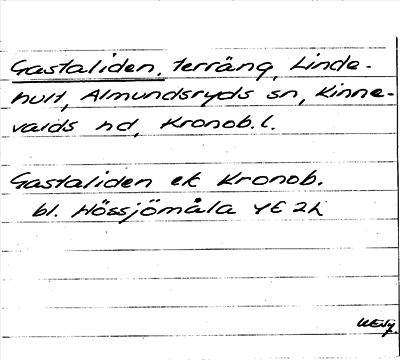 Gastaliden, terräng, Linde-
hult, Almundsryds sn, Kinne-
valds hd, Kronob. l.
Gastaliden ek Kronob.
bl. Hössjömåla 4E 2h